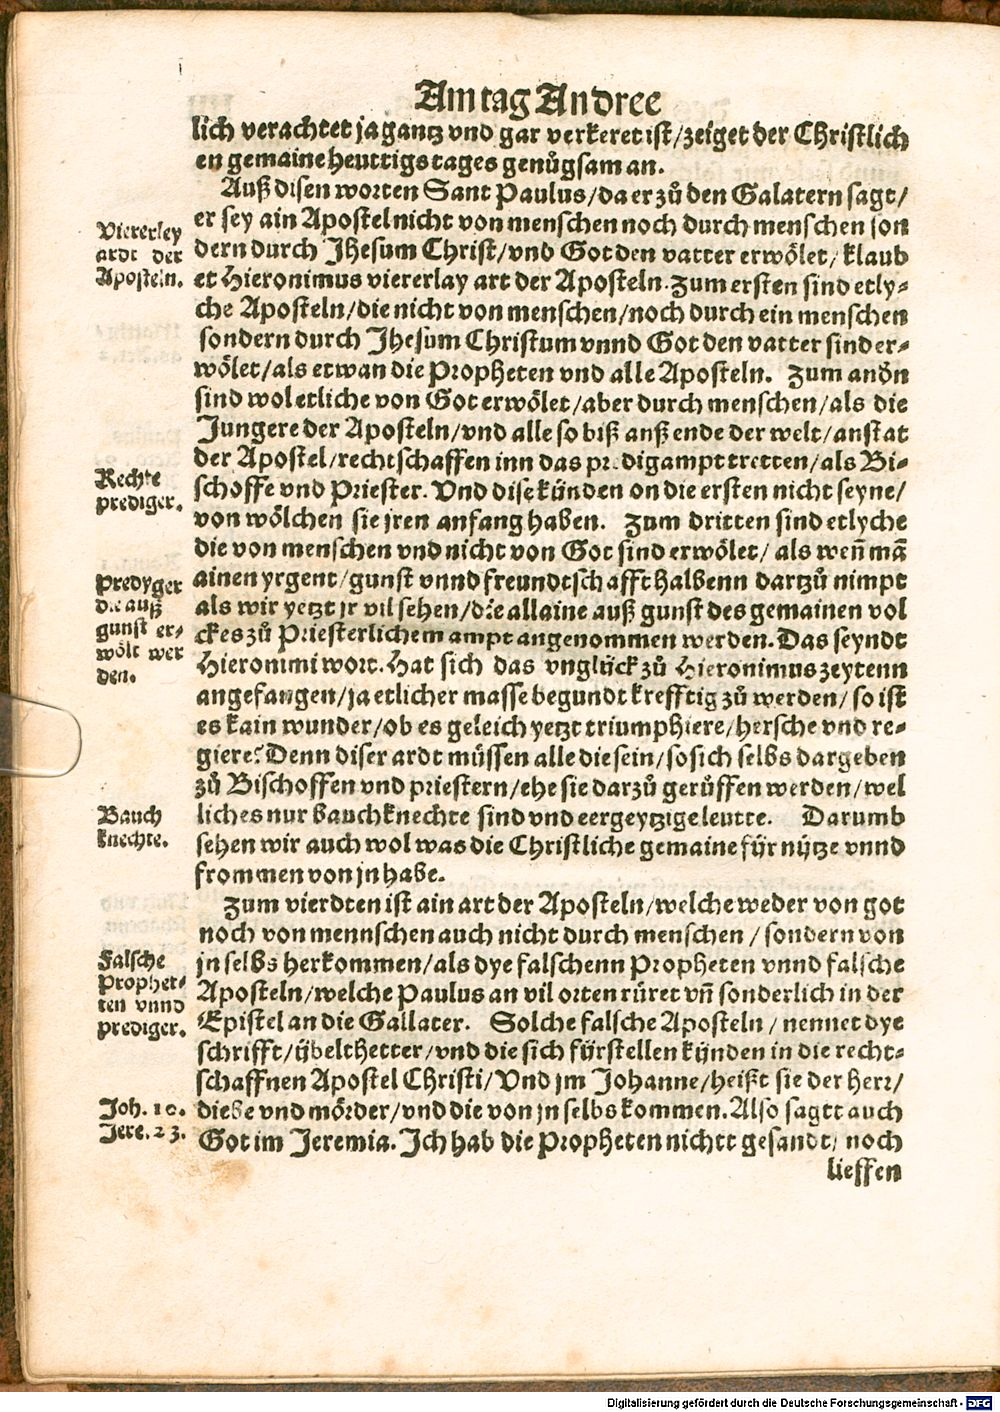 Am tag Andree
lich verachtet ja gantz vnd gar verkeret ist/zeiget der Christlich
en gemaine heuttigs tages genůgsam an.
Auß disen worten Sant Paulus/da er zů den Galatern sagt/
er sey ain Apostel nicht von menschen noch durch menschen son
dern durch Jhesum Christ/vnd Got den vatter erwölet/ klaub
et Hieronimus viererlay art der Aposteln. Zum ersten sind etly-
che Aposteln/die nicht von menschen/noch durch ein menschen
sondern durch Jhesum Christum vnnd Got den vatter sind er-
wölet/als etwan die Propheten vnd alle Aposteln. Zum andn̄
sind wol etliche von Got erwölet/aber durch menschen/als die
Jungere der Aposteln/vnd alle so biß anß ende der welt/anstat
der Apostel/rechtschaffen inn das predigampt tretten/als Bi-
schoffe vnd Priester. Vnd dise künden on die ersten nicht seyne/
von wölchen sie jren anfang haben. Zum dritten sind etlyche
die von menschen vnd nicht von Got sind erwölet/ als weñ mā
ainen yrgent/gunst vnnd freundtschafft halbenn dartzů nimpt
als wir yetzt jr vil sehen/die allaine auß gunst des gemainen vol
ckes zů Priesterlichem ampt angenommen werden. Das seyndt
Hieronimi wort. Hat sich das vnglück zů Hieronimus zeytenn
angefangen/ja etlicher masse begundt krefftig zů werden/ so ist
es kain wunder/ob es geleich yetzt triumphiere/hersche vnd re-
giere? Denn diser ardt müssen alle die sein/so sich selbs dargeben
zů Bischoffen vnd priestern/ehe sie darzů gerůffen werden/wel
liches nur bauchknechte sind vnd eergeytzige leutte. Darumb
sehen wir auch wol was die Christliche gemaine für nütze vnnd
frommen von jn habe.
Zum vierdten ist ain art der Aposteln/welche weder von got
noch von mennschen auch nicht durch menschen / sondern von
jn selbs herkommen/als dye falschenn Propheten vnnd falsche
Aposteln/welche Paulus an vil orten rüret vñ sonderlich in der
Epistel an die Gallater. Solche falsche Aposteln / nennet dye
schrifft/übelthetter/vnd die sich fürstellen künden in die recht-
schaffnen Apostel Christi/Vnd jm Johanne/heißt sie der herr/
diebe vnd mörder/vnd die von jn selbs kommen. Also sagtt auch
Got im Jeremia. Ich hab die Propheten nichtt gesandt/ noch
lieffen
Viererley
ardt der
Aposteln.
Rechte
prediger.
Predyger
die auß
gunst er-
wölt wer
den.
Bauch
knechte.
Falsche
Prophet-
ten vnnd
prediger.
Joh. 10.
Jere. 23.
Digitalisierung gefördert durch die Deutsche Forschungsgemeinschaft - DFG